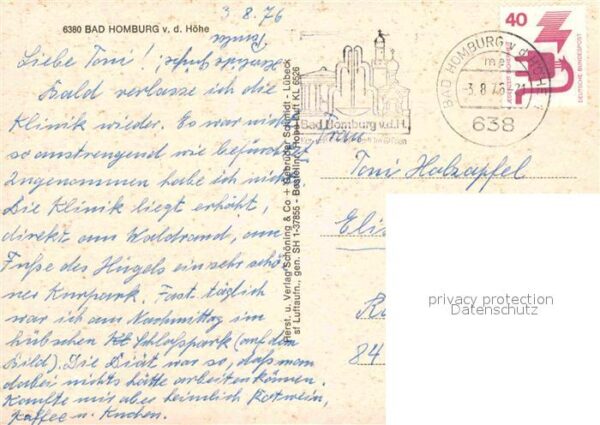 3.8.76
6380 BAD HOMBURG v. d. Höhe
Liebe Toni!
Bald verlasse ich die
Klinik wieder. Es war nicht
so anstrengend wie befürchtet
Zugenommen habe ich nicht
Die Klinik liegt erhöht,
direkt am Waldrand, am
Fuße des Hügels ein sehr schö-
ner Kurpark. Fast täglich
war ich am Nachmittag im
hübschen Schloßpark (auf dem
Bild). Die Diät war so, daß man
dabei nichts hätte arbeiten können.
Kaufte mir aber heimlich Rotwein,
Kaffee u. Kuchen.
Herzliche Grüße
Herst. u. Verlag Schöning & Co + Gebrüder Schmidt · Lübeck
sf Luftaufn., gen. SH 1-37855 - Bestellnr. Hom Luft KL 6526
Bad Homburg v.d.H.
BAD HOMBURG v d HÖHE 1
-3.8.76-21
638
40
JEDERZEIT SICHERHEIT
DEUTSCHE BUNDESPOST
Frau
Toni Holzapfel
Eli
84
privacy protection
Datenschutz